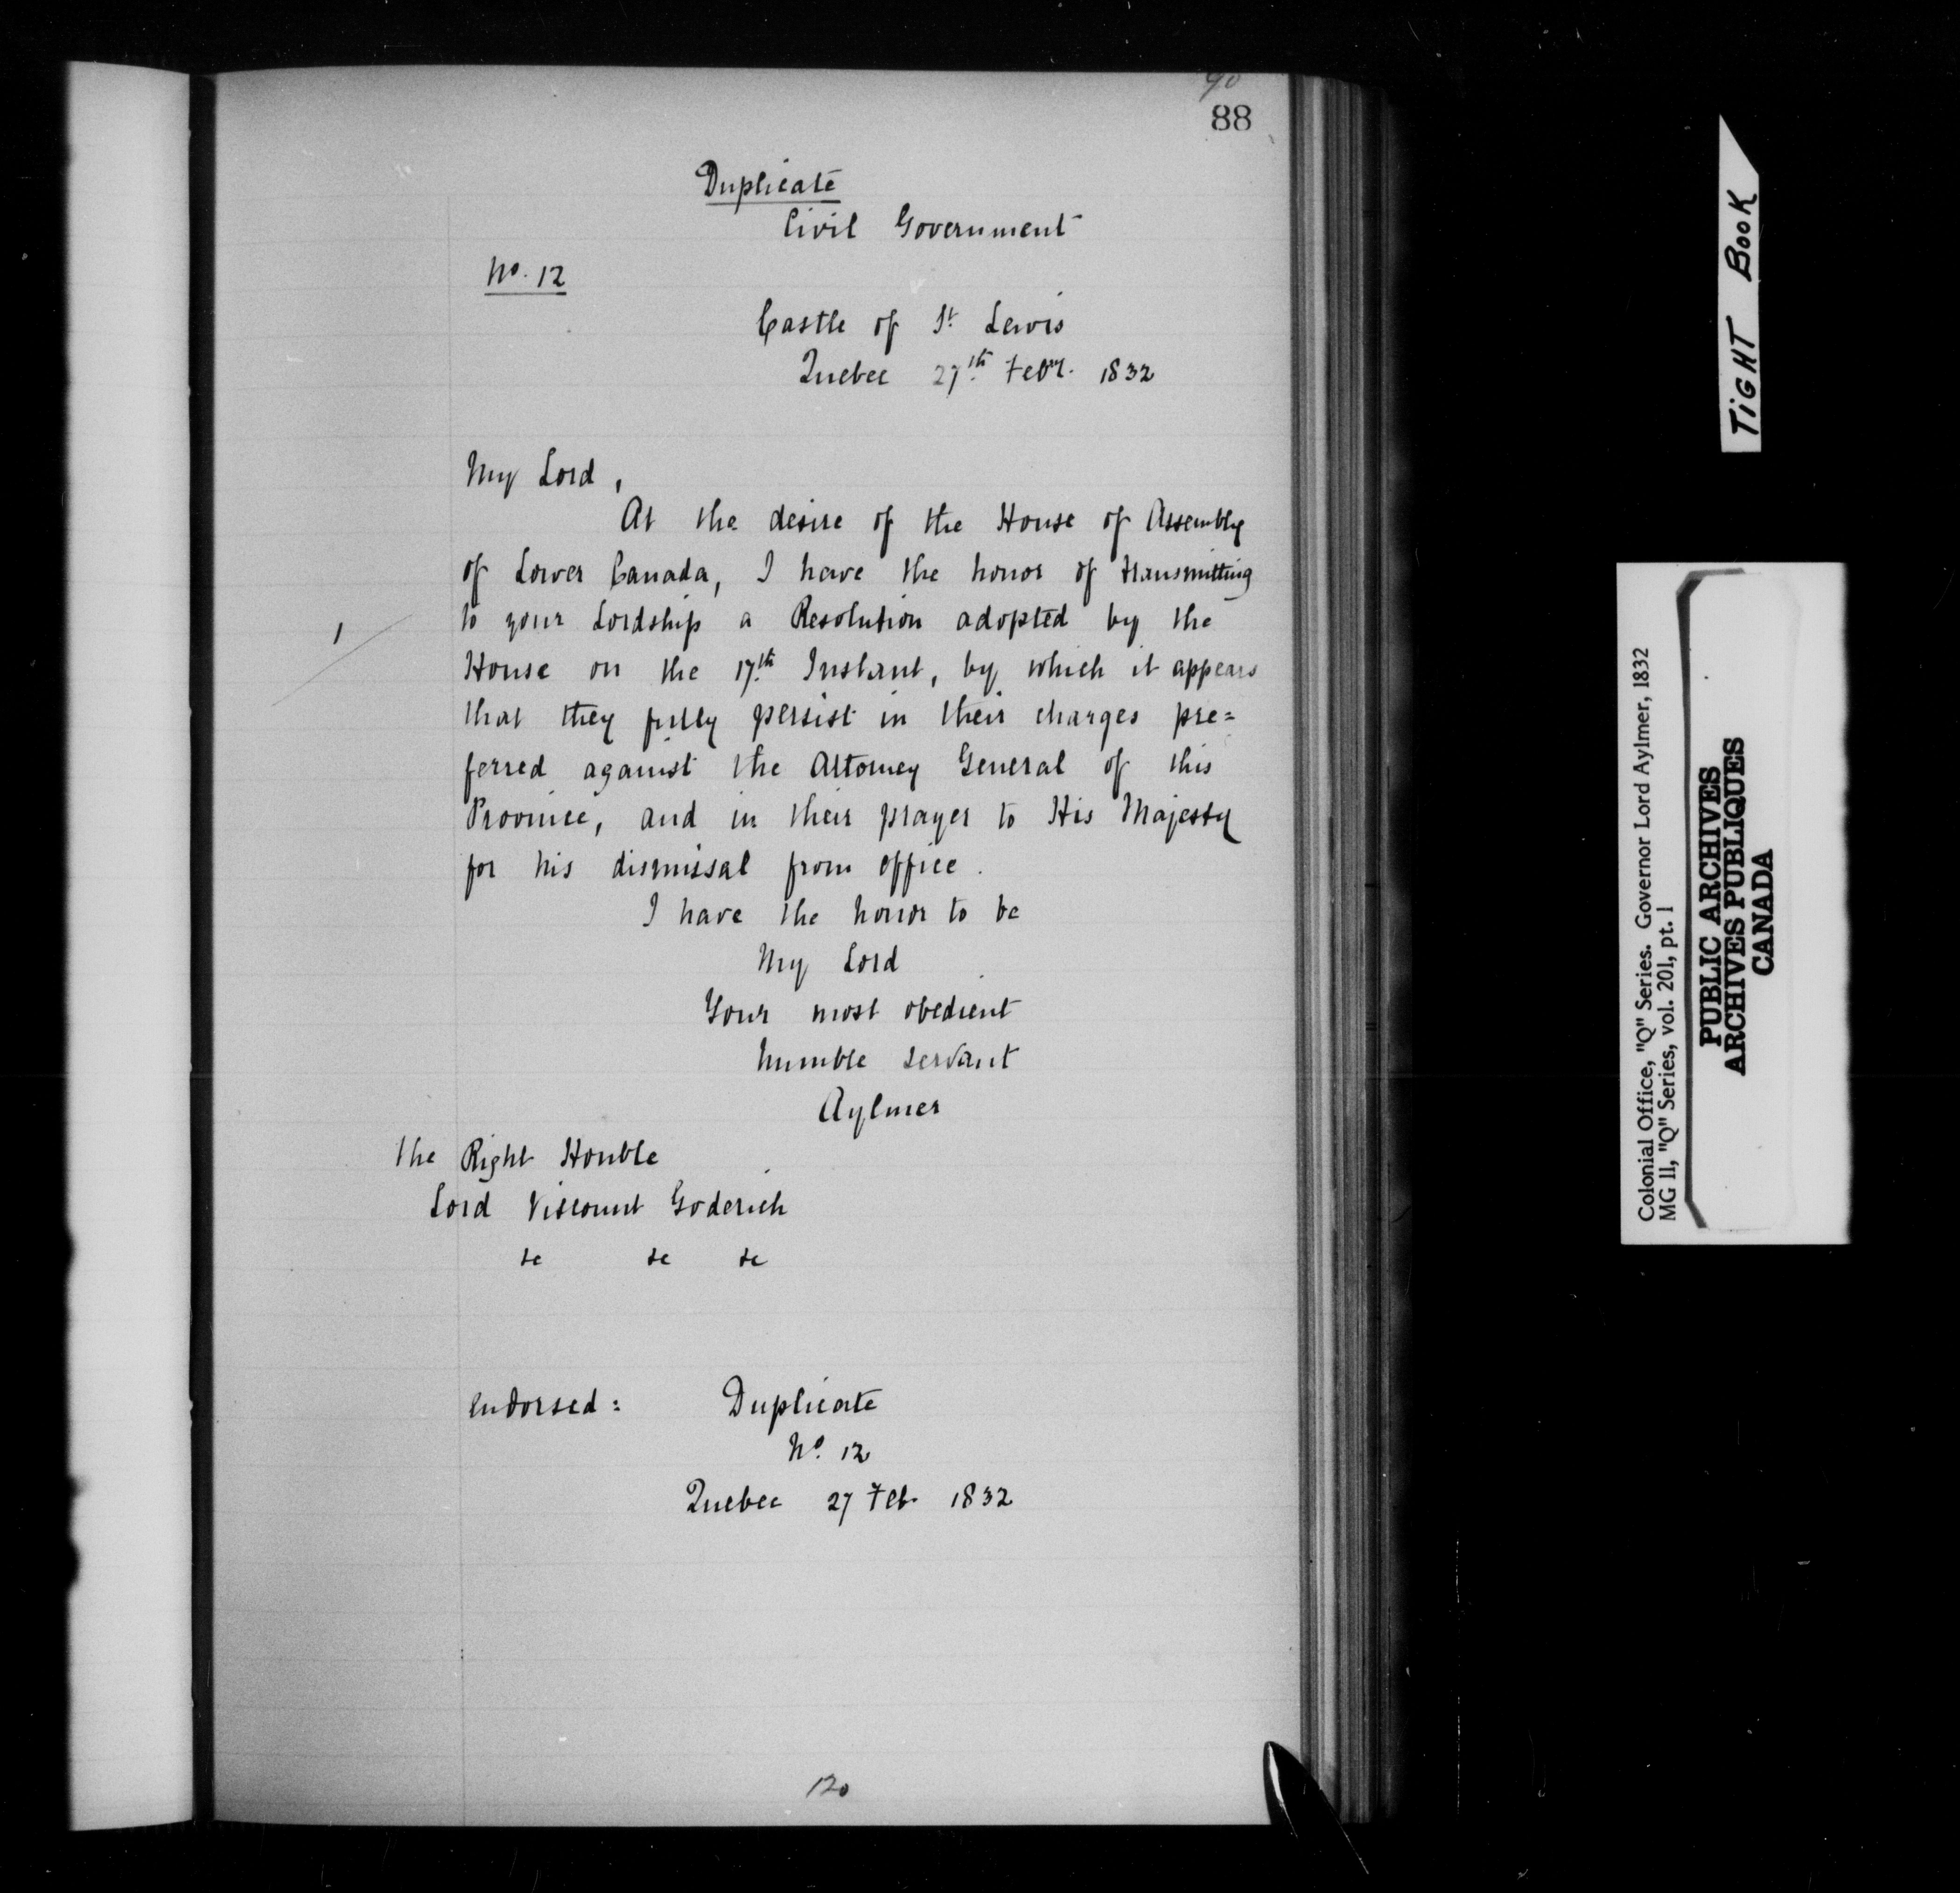 90
88
Duplicate
Civil Government
No. 12
Castle of St Lewis
Quebec 27th Febry. 1832
My Lord,
At the desire of the House of Assembly
of Lower Canada, I have the honor of transmitting
to your Lordship a Resolution adopted by the
House on the 17th Instant, by which it appears
that they fully persist in their charges pre=
ferred against the Attorney General of this
Province, and in their prayer to His Majesty
for his dismissal from office.
I have the honor to be
My Lord
Your most obedient
humble servant
Aylmer
The Right Honble
Lord Viscount Goderich
&c &c &c
1
Endorsed: Duplicate
No. 12
Quebec 27 Feb 1832
120
TiGHT BooK
Colonial Office, "Q" Series. Governor Lord Aylmer, 1832
MG 11, "Q" Series, vol. 201, pt. 1
PUBLIC ARCHIVES
ARCHIVES PUBLIQUES
CANADA